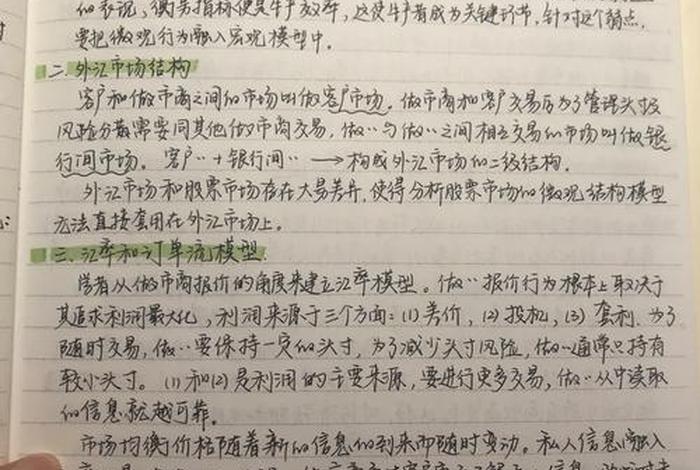 的表说，衡务指标便是生产效率，这使生产者成为关键环节，针对这个弱点，
要把微观行为融入宏观模型中。
二.外汇市场结构
客户和做市商之间的市场叫做客户市场。做市商和客户交易后为了管理头寸及
风险分散需要同其他做市商交易，做〃与做〃之间相互交易的市场叫做银
行间市场。客户〃+银行间〃 ⟶构成外汇市场的二级结构.
外汇市场和股票市场存在大量差异,使得分析股票市场的微观结构模型
无法直接套用在外汇市场上。
三.汇率和订单流模型.
学者从做市商报价的角度来建立汇率模型。做〃报价行为根本上取决于
其追求利润最大化，利润来源于三个方面：(1)差价，(2)投机，(3)套利。为了
随时交易，做〃要保持一定的头寸，为了减少头寸风险，做〃通常只持有
较小头寸。(1)和(2)是利润的主要来源，要进行更多交易，做〃从中读取
的信息就越可靠。
市场均衡价格随着新的信息的到来而随时变动。私人信息融入